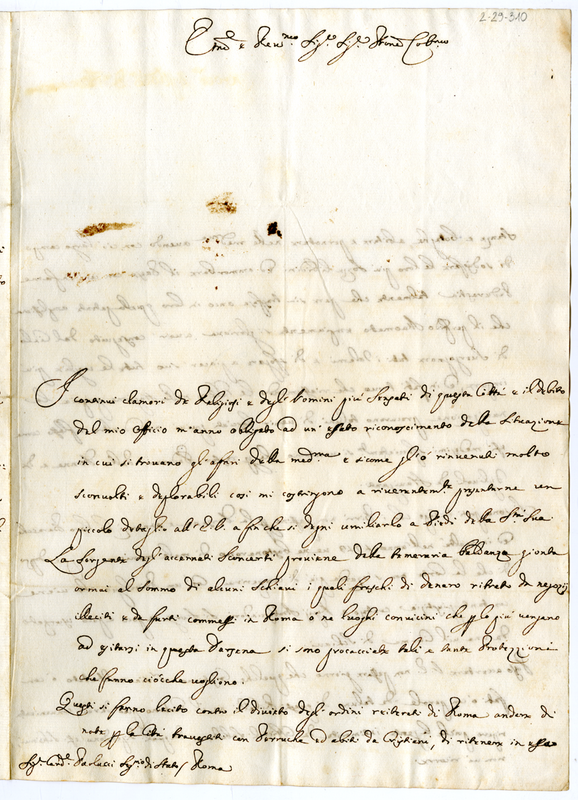 2-29-310
Em̃o e Rev.mo Sig.re Sig.re Pñe Col.mo
I continui clamori de Religiosi e degl'Uomini più sensati di questa Città e il debito
del mio officio m'anno obligato ad un' esato riconoscimento della situazione
in cui si trovano gl'afari della med.ma e sicome gl'ò rinvenuti molto
sconvolti e deplorabili così mi costringono a riverentem.te presentarne un
piccolo detaglio all' E.V. afinche si degni umiliarlo a Piedi della S.tà Sua
La sorgente degl'accennati sconcerti proviene dalla temeraria baldanza gionta
ormai al sommo di alcuni schiavi i quali freschi di denaro ritrato da negozij
illeciti e da furti commessi in Roma o ne luoghi convicini che p lo più vengano
ad in questa Darsena si sono procacciate tali e tante Protezzioni
che fanno ciò che vogliono.
Questi si fanno lecito contro il divieto degl'ordini reiterati di Roma andare di
note p la Cità travestiti con Perruche ed abiti da Cristiani, di ritenere in essa
Sig.r Card.le Paolucci Seg.rio di Stato / Roma